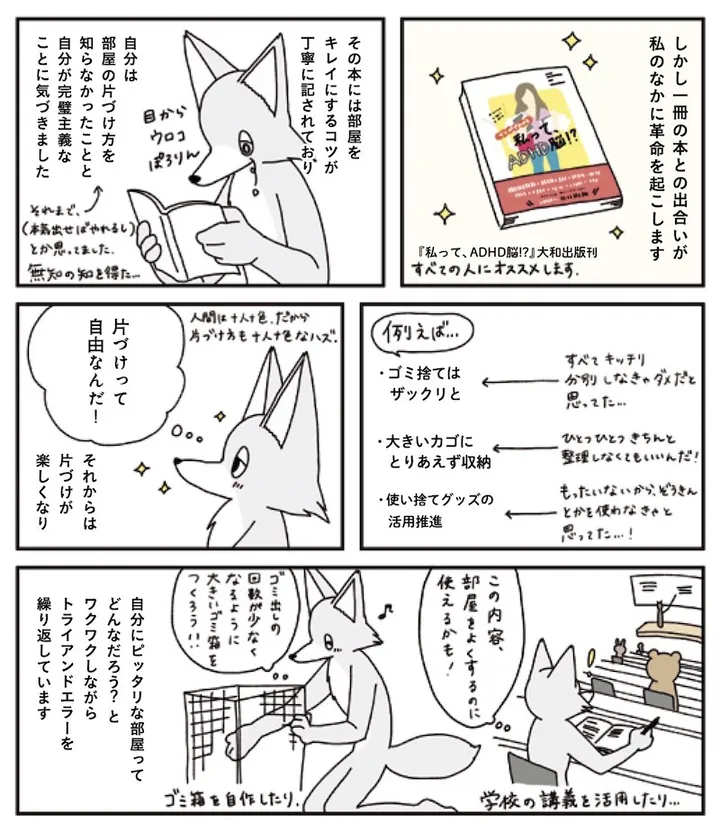 しかし一冊の本との出合いが
私のなかに革命を起こします
私って、
ADHD脳!?
『私って、ADHD脳!?』大和出版刊
すべての人にオススメします.
その本には部屋を
キレイにするコツが
丁寧に記されており
目から
ウロコ
ぽろりん
自分は
部屋の片づけ方を
知らなかったことと
自分が完璧主義な
ことに気づきました
それまで、
(本気出せばやれるし)
とか思ってました.
無知の知を得た…
例えば…
・ゴミ捨ては
ザックリと
すべてキッチリ
分別しなきゃダメだと
思ってた…
・大きいカゴに
とりあえず収納
ひとつひとつきちんと
整理しなくてもいいんだ!
・使い捨てグッズの
活用推進
もったいないから、ぞうきん
とかを使わなきゃと
思ってた…!
人間は十人十色.だから
片づけ方も十人十色なハズ.
片づけって
自由なんだ!
それからは
片づけが
楽しくなり
この内容、
部屋をよくするのに
使えるかも!
学校の講義を活用したり…
ゴミ出しの
回数が少なく
なるように
大きいゴミ箱を
つくろう!!
ゴミ箱を自作したり.
自分にピッタリな部屋って
どんなだろう?と
ワクワクしながら
トライアンドエラーを
繰り返しています